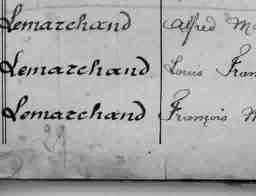 Lemarchand Alfred M
Lemarchand Louis Fran
Lemarchand François M
29